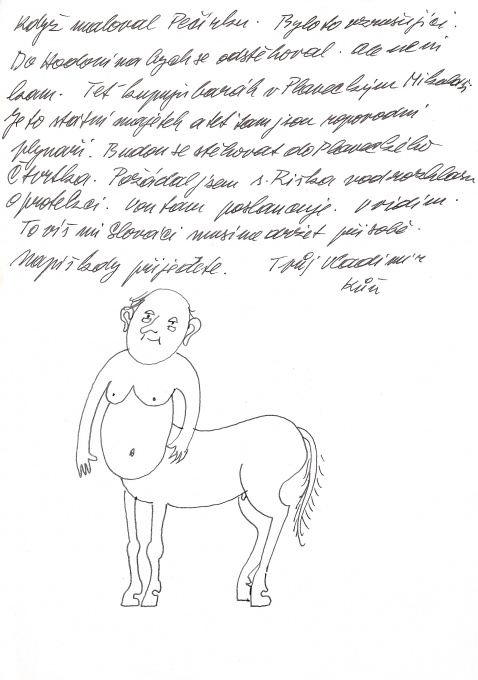 Když maloval Pečírku. Bylo to vzrušující.
Do Hodonína bych se odstěhoval. ale není
kam. Teť kupuji barák v Plaveckým Mikoláši.
Je to statní majetek a teť tam jsou nepovodní
plynaři. Budou se stěhovat do Plaveckého
Čtvrtka. Požádal jsem s. Riška vod rozhlasu
o protekci. von tam poslancuje. Uvidím.
To víš mi Slováci musíme držet při sobě.
Napiš kdy přijedete. Tvůj Vladimír
Kůň